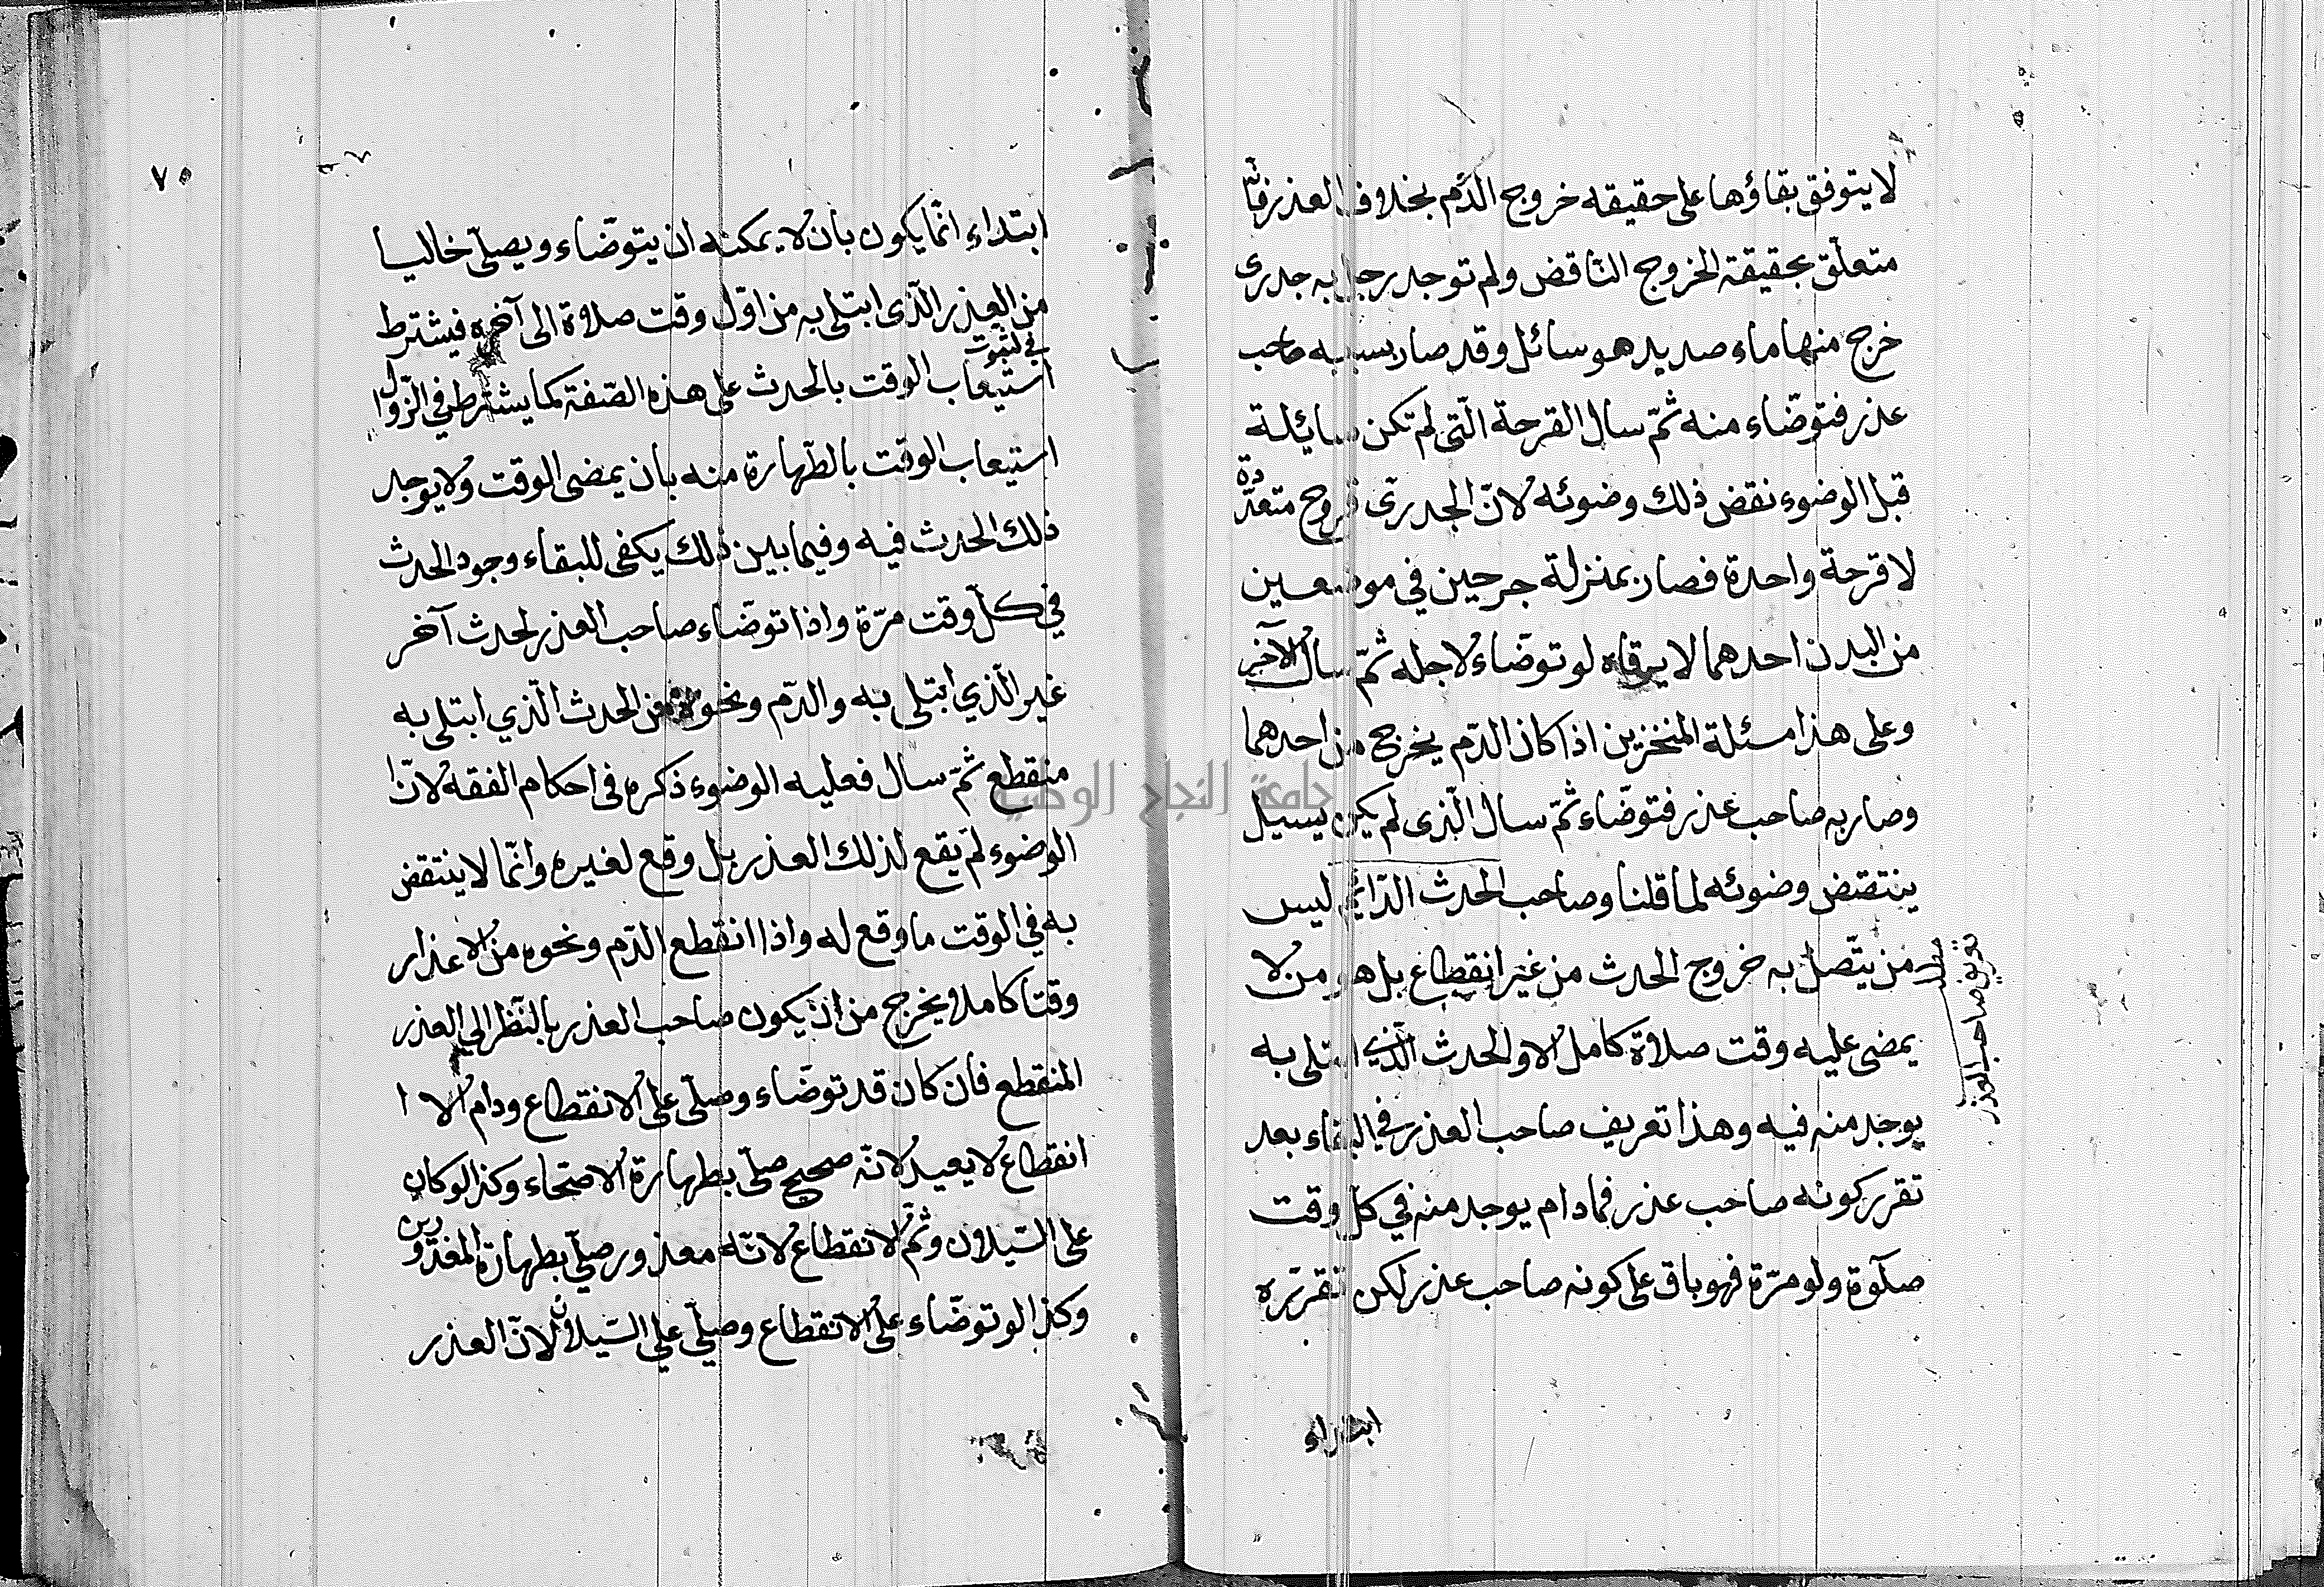 لا يتوفق بقاؤها على حقيقه خروج الدّم بخلاف العذر فانّه
متعلّق بحقيقة الخروج الناقض ولم توجد رجل به جدرى
خرج منها ماء صديد هو سائل وقد صار بسببه صاحب
عذر فتوضّاء منه ثمّ سال القرحة الّتى لم تكن سايئلة
قبل الوضوء نقض ذلك وضوئه لانّ الجدرى قروح متعدّدة
لا قرحة واحدة فصار بمنزلة جرحين في موضعين
من البدن احدهما لا يرقاء لو توضّاء لاجله ثمّ سال الآخر
وعلى هذا مسئلة المنخزين اذا كان الدّم يخرج من احدهما
وصار به صاحب عذر فتوضّاء ثمّ سال الّذى لم يكن يسيل
ينتقض وضوئه لما قلنا وصاحب الحدث الدّائم ليس
من يتّصل به خروج الحدث من غير انقطاع بل هو من لا
يمضى عليه وقت صلاة كامل الا والحدث الّذي ابتلى به
يوجد منه فيه وهذا تعريف صاحب العذر في البقاء بعد
تقرر كونه صاحب عذر فمادام يوجد منه في كلّ وقت
صلوة ولو مرّة فهو باق على كونه صاحب عذر لكن تقرّره
مطلب
تعريف صاحب العذر
ابتداء
٧٥
ابتداء انّما يكون بان لا يمكنه ان يتوضّاء ويصلّى خاليا
من العذر الّذى ابتلى به من اوّل وقت صلاة الى آخره فيشترط
في لثبوت
استيعاب الوقت بالحدث على هذه الصّفة كما يشترط في الزّوال
استيعاب الوقت بالطّهارة منه بان يمضى الوقت ولا يوجد
ذلك الحدث فيه وفيما بين ذلك يكفى للبقاء وجود الحدث
في كلّ وقت مرّة واذا توضّاء صاحب العذر لحدث آخر
غير الّذي ابتلى به والدّم ونحوه من الحدث الّذي ابتلى به
منقطع ثمّ سال فعليه الوضوء ذكره فى احكام الفقه لانّ ا
الوضوء لم يقع لذلك العذر بل وقع لغيره وانّما لا ينتقض
به في الوقت ما وقع له واذا انقطع الدّم ونحوه من الاعذار
وقتا كاملا يخرج من ان يكون صاحب العذر بالنّظر الي العذر
المنقطع فان كان قد توضّاء وصلّى على الانقطاع ودام الا ا
انقطاع لا يعيد لانّه صحيح صلّى بطهارة الاصحّاء وكذا لو كان
على السّيلان وثمّ الانقطاع لانّه معذور صلّي بطهارة المعذورين
وكذا لو توضّاء على الانقطاع وصلّي علي السّيلان لانّ العذر
جامعة النجاح الوطنية